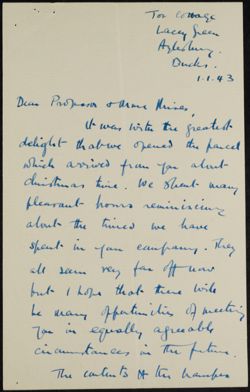 Tor Cottage
Lacey Green
Aylesbury.
Bucks.
1.1.43
Dear Professor & Mme Mises,
It was with the greatest
delight that we opened the parcel
which arrived from you about
Christmas time. We spent many
pleasant hours reminiscing
about the times we have
spent in your company. They
all seem very far off now
but I hope that there will
be many opportunities of meeting
you in equally agreeable
circumstances in the future.
The contents of the hamper